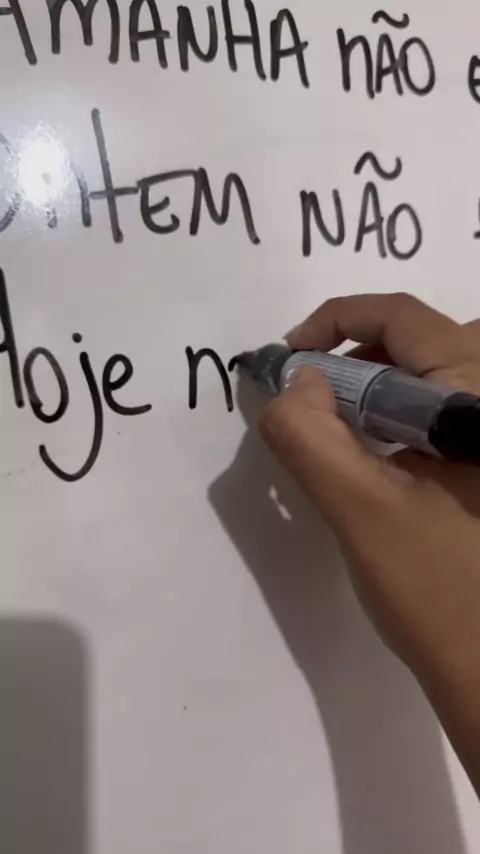 AMANHA NÃO
ONTEM NÃO
Hoje n